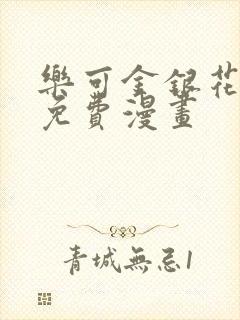 樂可金銀花
免費漫畫
青城無忌1